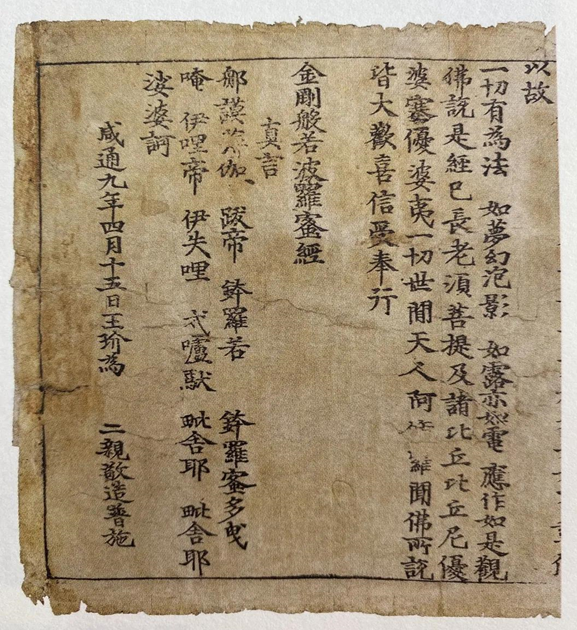 以故
一切有為法 如夢幻泡影 如露亦如電 應作如是觀
佛說是經已長老須菩提及諸比丘比丘尼優
婆塞優婆夷一切世間天人阿修羅聞佛所說
皆大歡喜信受奉行
金剛般若波羅蜜經
真言
那謨薄伽 跋帝 鉢羅若 鉢羅蜜多曳
唵 伊哩帝 伊失哩 戍嚧馱 毗舍耶 毗舍耶
娑婆訶
咸通九年四月十五日王玠為 二親敬造普施